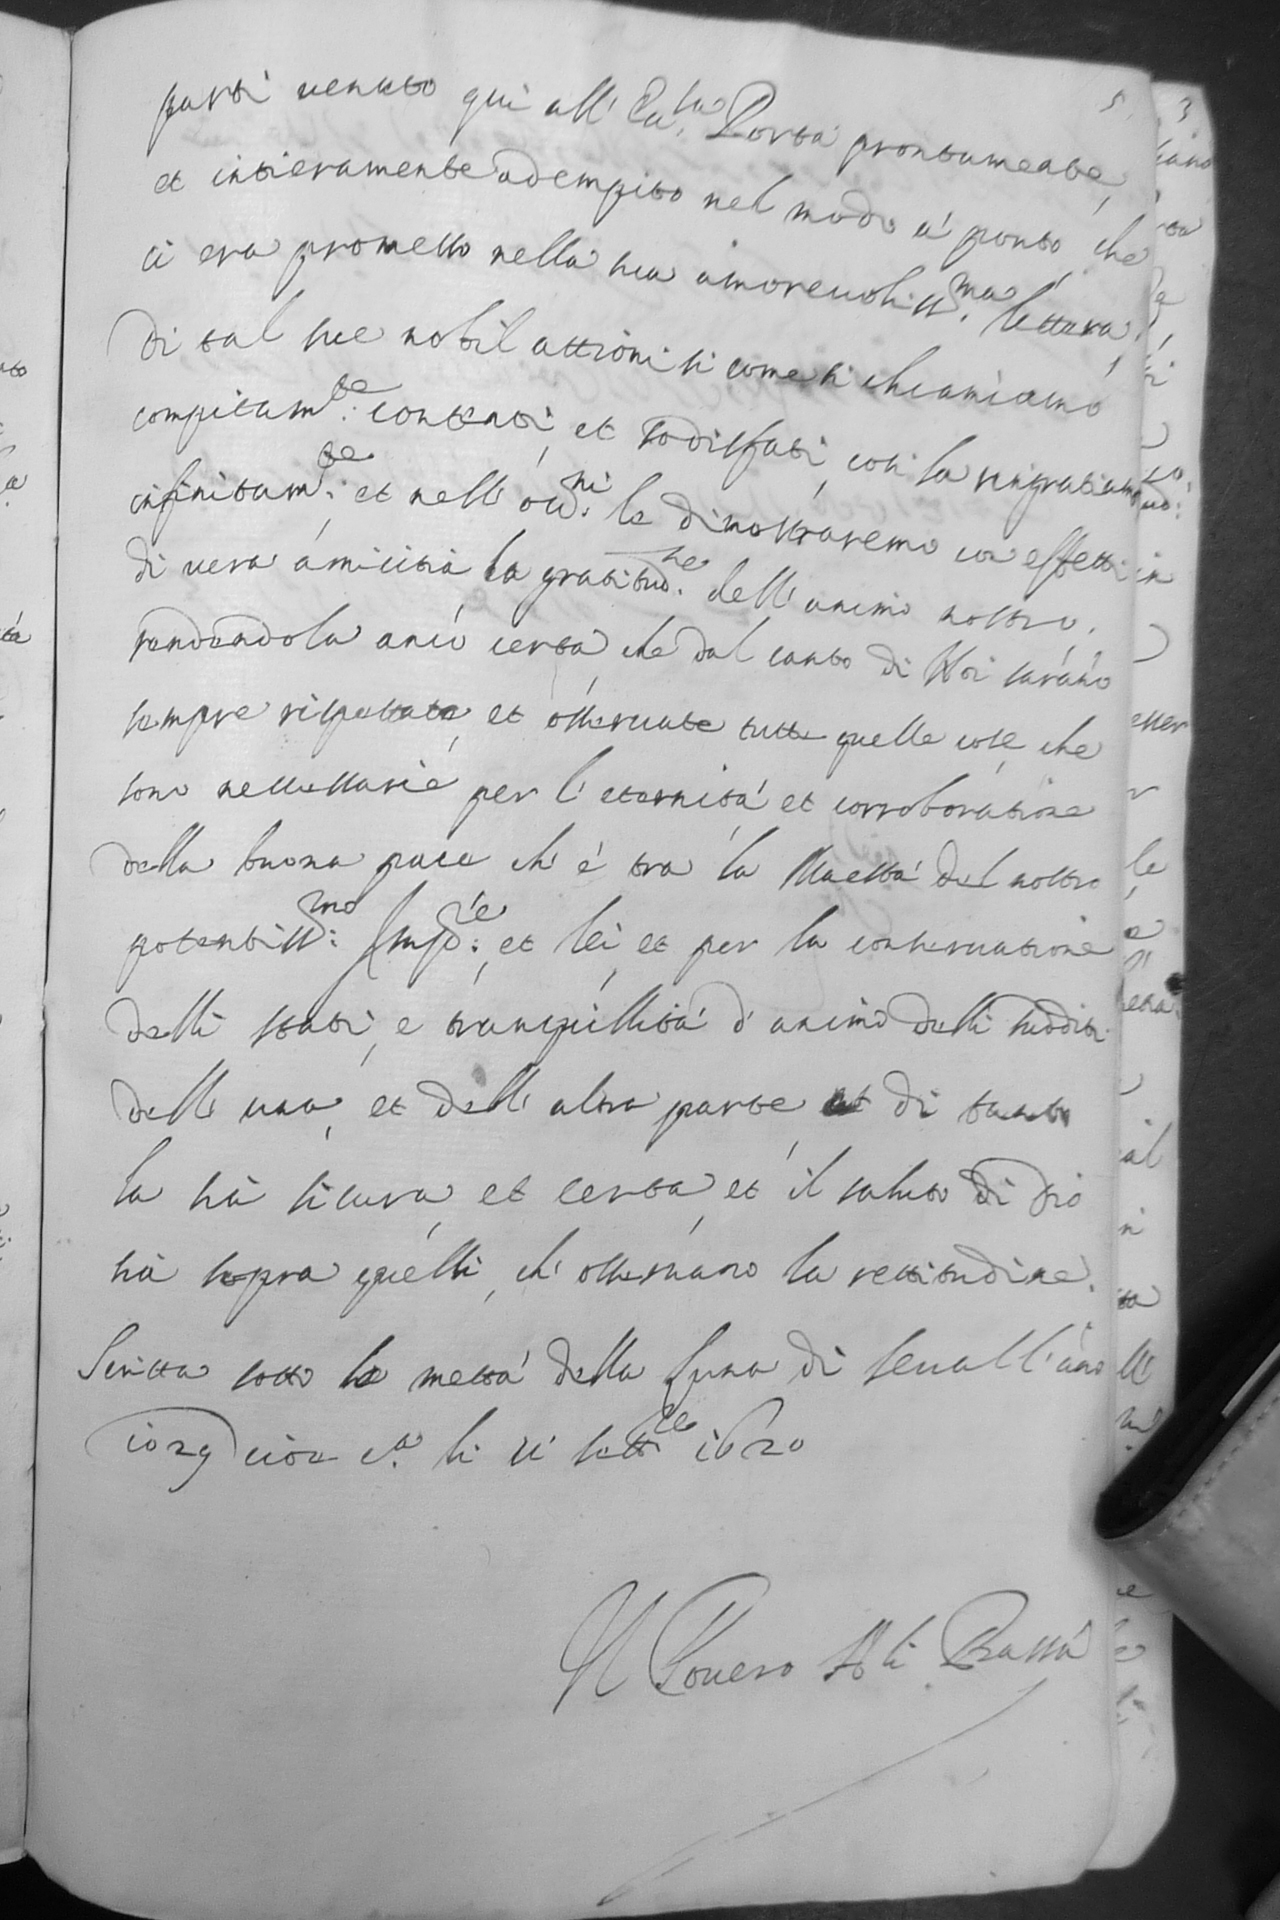 5.
parti venuto qui all' Ecc.sa Porta prontamente,
et intieramente adempito nel modo a' ponto, che
ci era promesso nella sua amorevoliss.ma lettera,
di tal sue nobil attioni si come si chiamiamo
compitam.te contenti, et sodisfati, così la ringratiamo
infinitam.te et nell' occ.ni le dimostraremo con effetti
di vera amicitia la gratitud.ne dell' animo nostro,
rendendola anco certa, che dal canto di Noi sarano
sempre rispettate, et osservate tutte quelle cose, che
sono nessessarie per l' eternità et corroboratione
della buona pace ch' è tra la Maestà del nostro
potentiss.mo Imp.re, et lei, et per la conservatione
delli stati, e tranquillità d' animo delli sudditi
dell' una, et dell' altra parte et di tanto
la sia sicura, et certa, et il saluto di Dio
sia sopra quelli, ch' osservano la rettitudine.
Scritta sotto la mettà della Luna di Seval l' ano
1029 cioè c.a li 11 sett.re 1620
Il Povero Alì Bassà